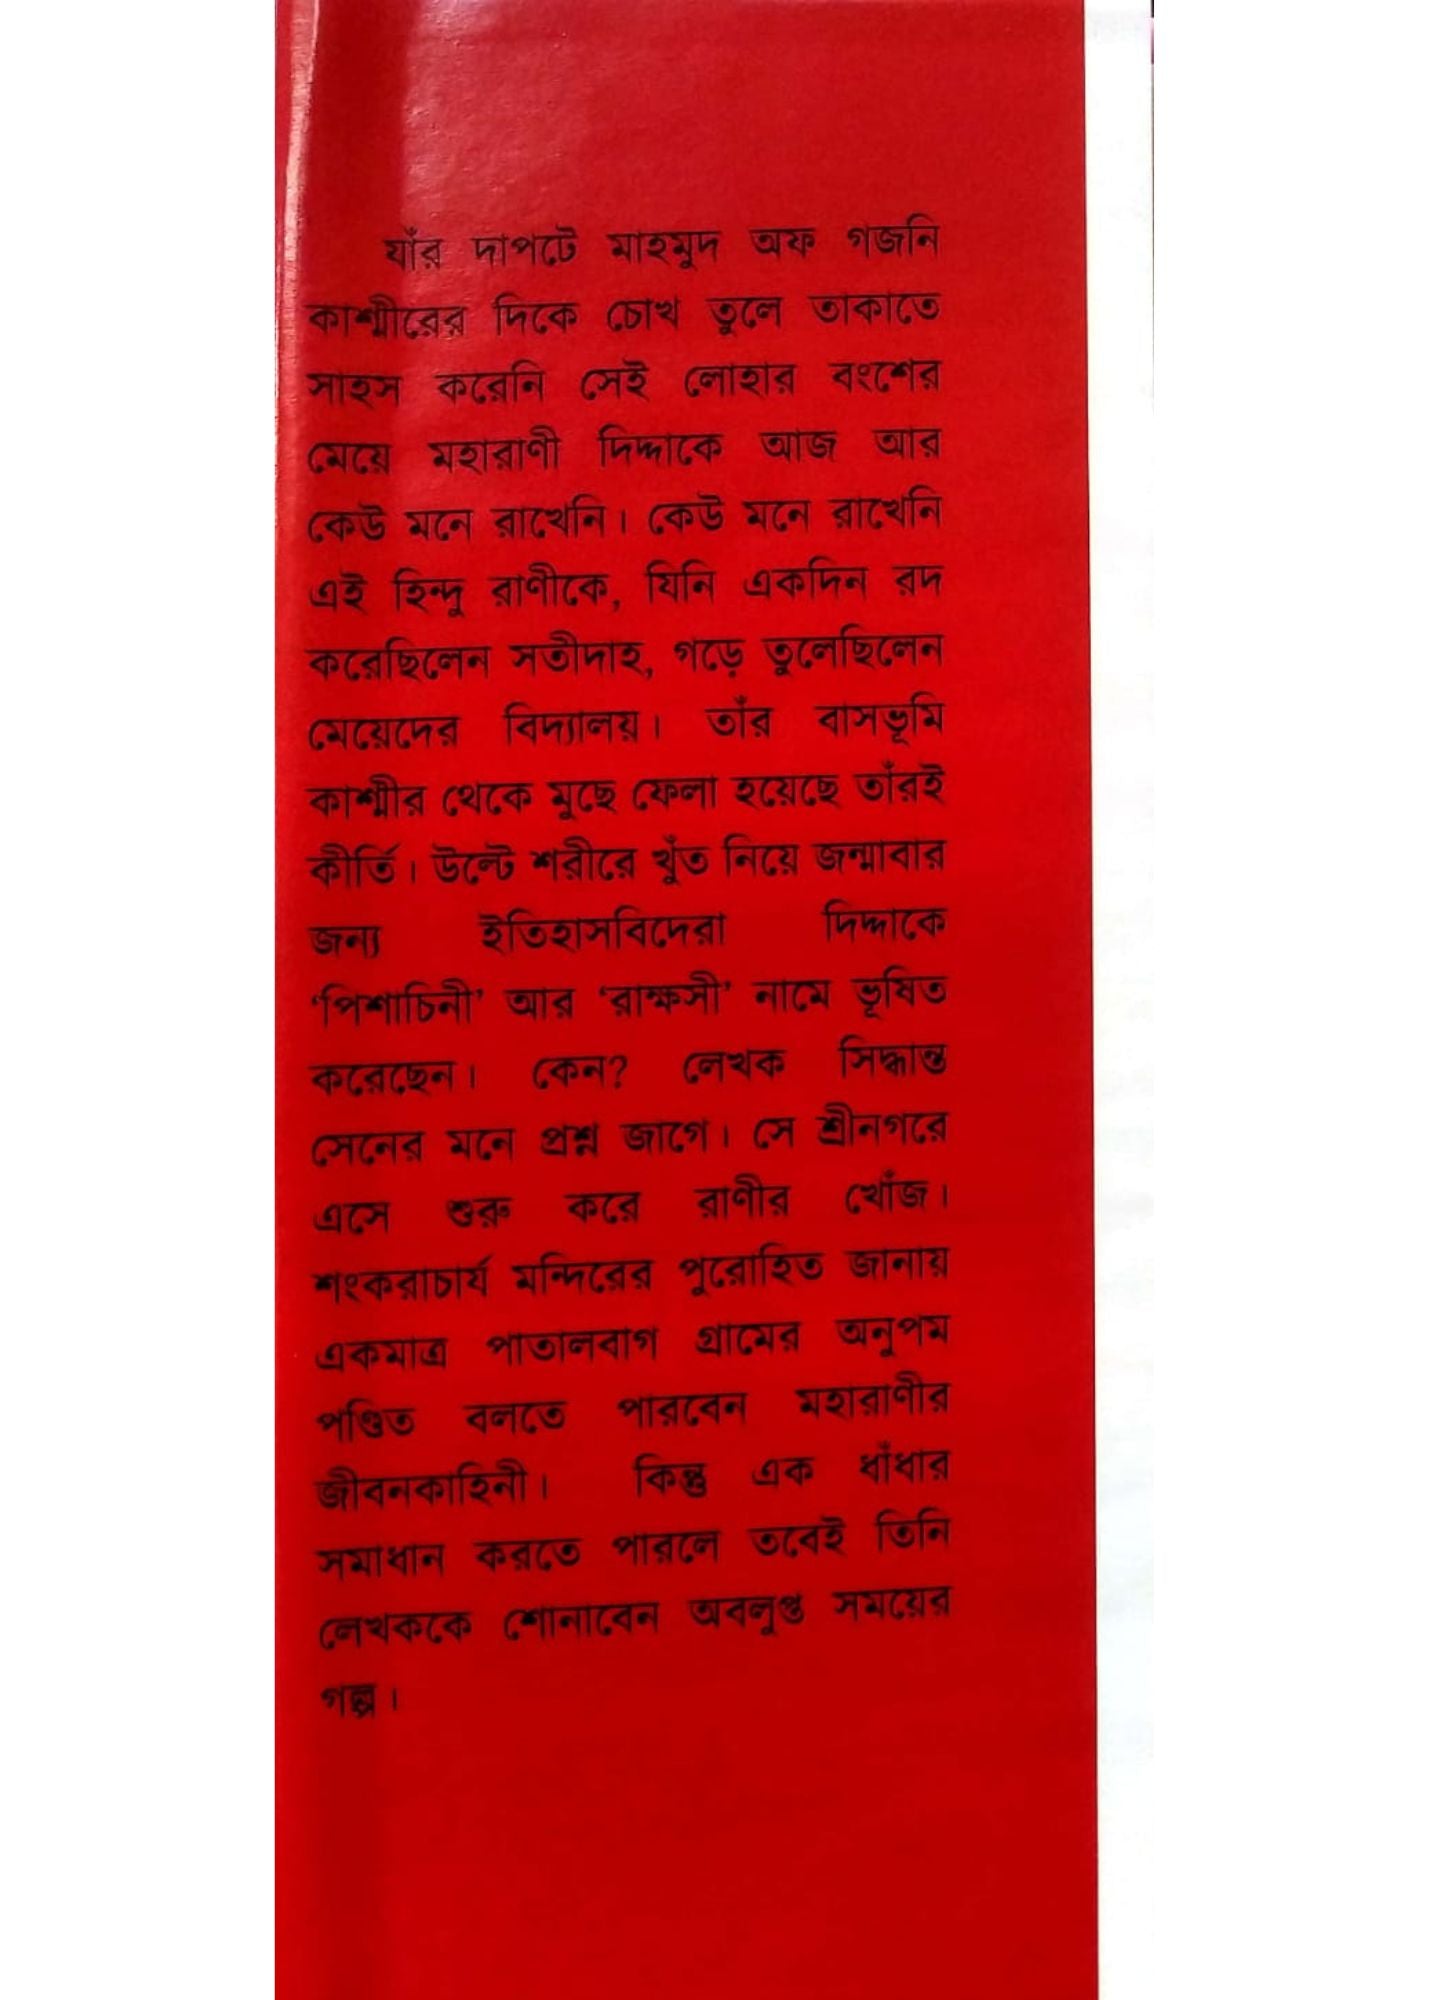 যাঁর দাপটে মাহমুদ অফ গজনি
কাশ্মীরের দিকে চোখ তুলে তাকাতে
সাহস করেনি সেই লোহার বংশের
মেয়ে মহারাণী দিদ্দাকে আজ আর
কেউ মনে রাখেনি। কেউ মনে রাখেনি
এই হিন্দু রাণীকে, যিনি একদিন রদ
করেছিলেন সতীদাহ, গড়ে তুলেছিলেন
মেয়েদের বিদ্যালয়। তাঁর বাসভূমি
কাশ্মীর থেকে মুছে ফেলা হয়েছে তাঁরই
কীর্তি। উল্টে শরীরে খুঁত নিয়ে জন্মাবার
জন্য ইতিহাসবিদেরা দিদ্দাকে
‘পিশাচিনী’ আর ‘রাক্ষসী’ নামে ভূষিত
করেছেন। কেন? লেখক সিদ্ধান্ত
সেনের মনে প্রশ্ন জাগে। সে শ্রীনগরে
এসে শুরু করে রাণীর খোঁজ।
শংকরাচার্য মন্দিরের পুরোহিত জানায়
একমাত্র পাতালবাগ গ্রামের অনুপম
পণ্ডিত বলতে পারবেন মহারাণীর
জীবনকাহিনী। কিন্তু এক ধাঁধার
সমাধান করতে পারলে তবেই তিনি
লেখককে শোনাবেন অবলুপ্ত সময়ের
গল্প।